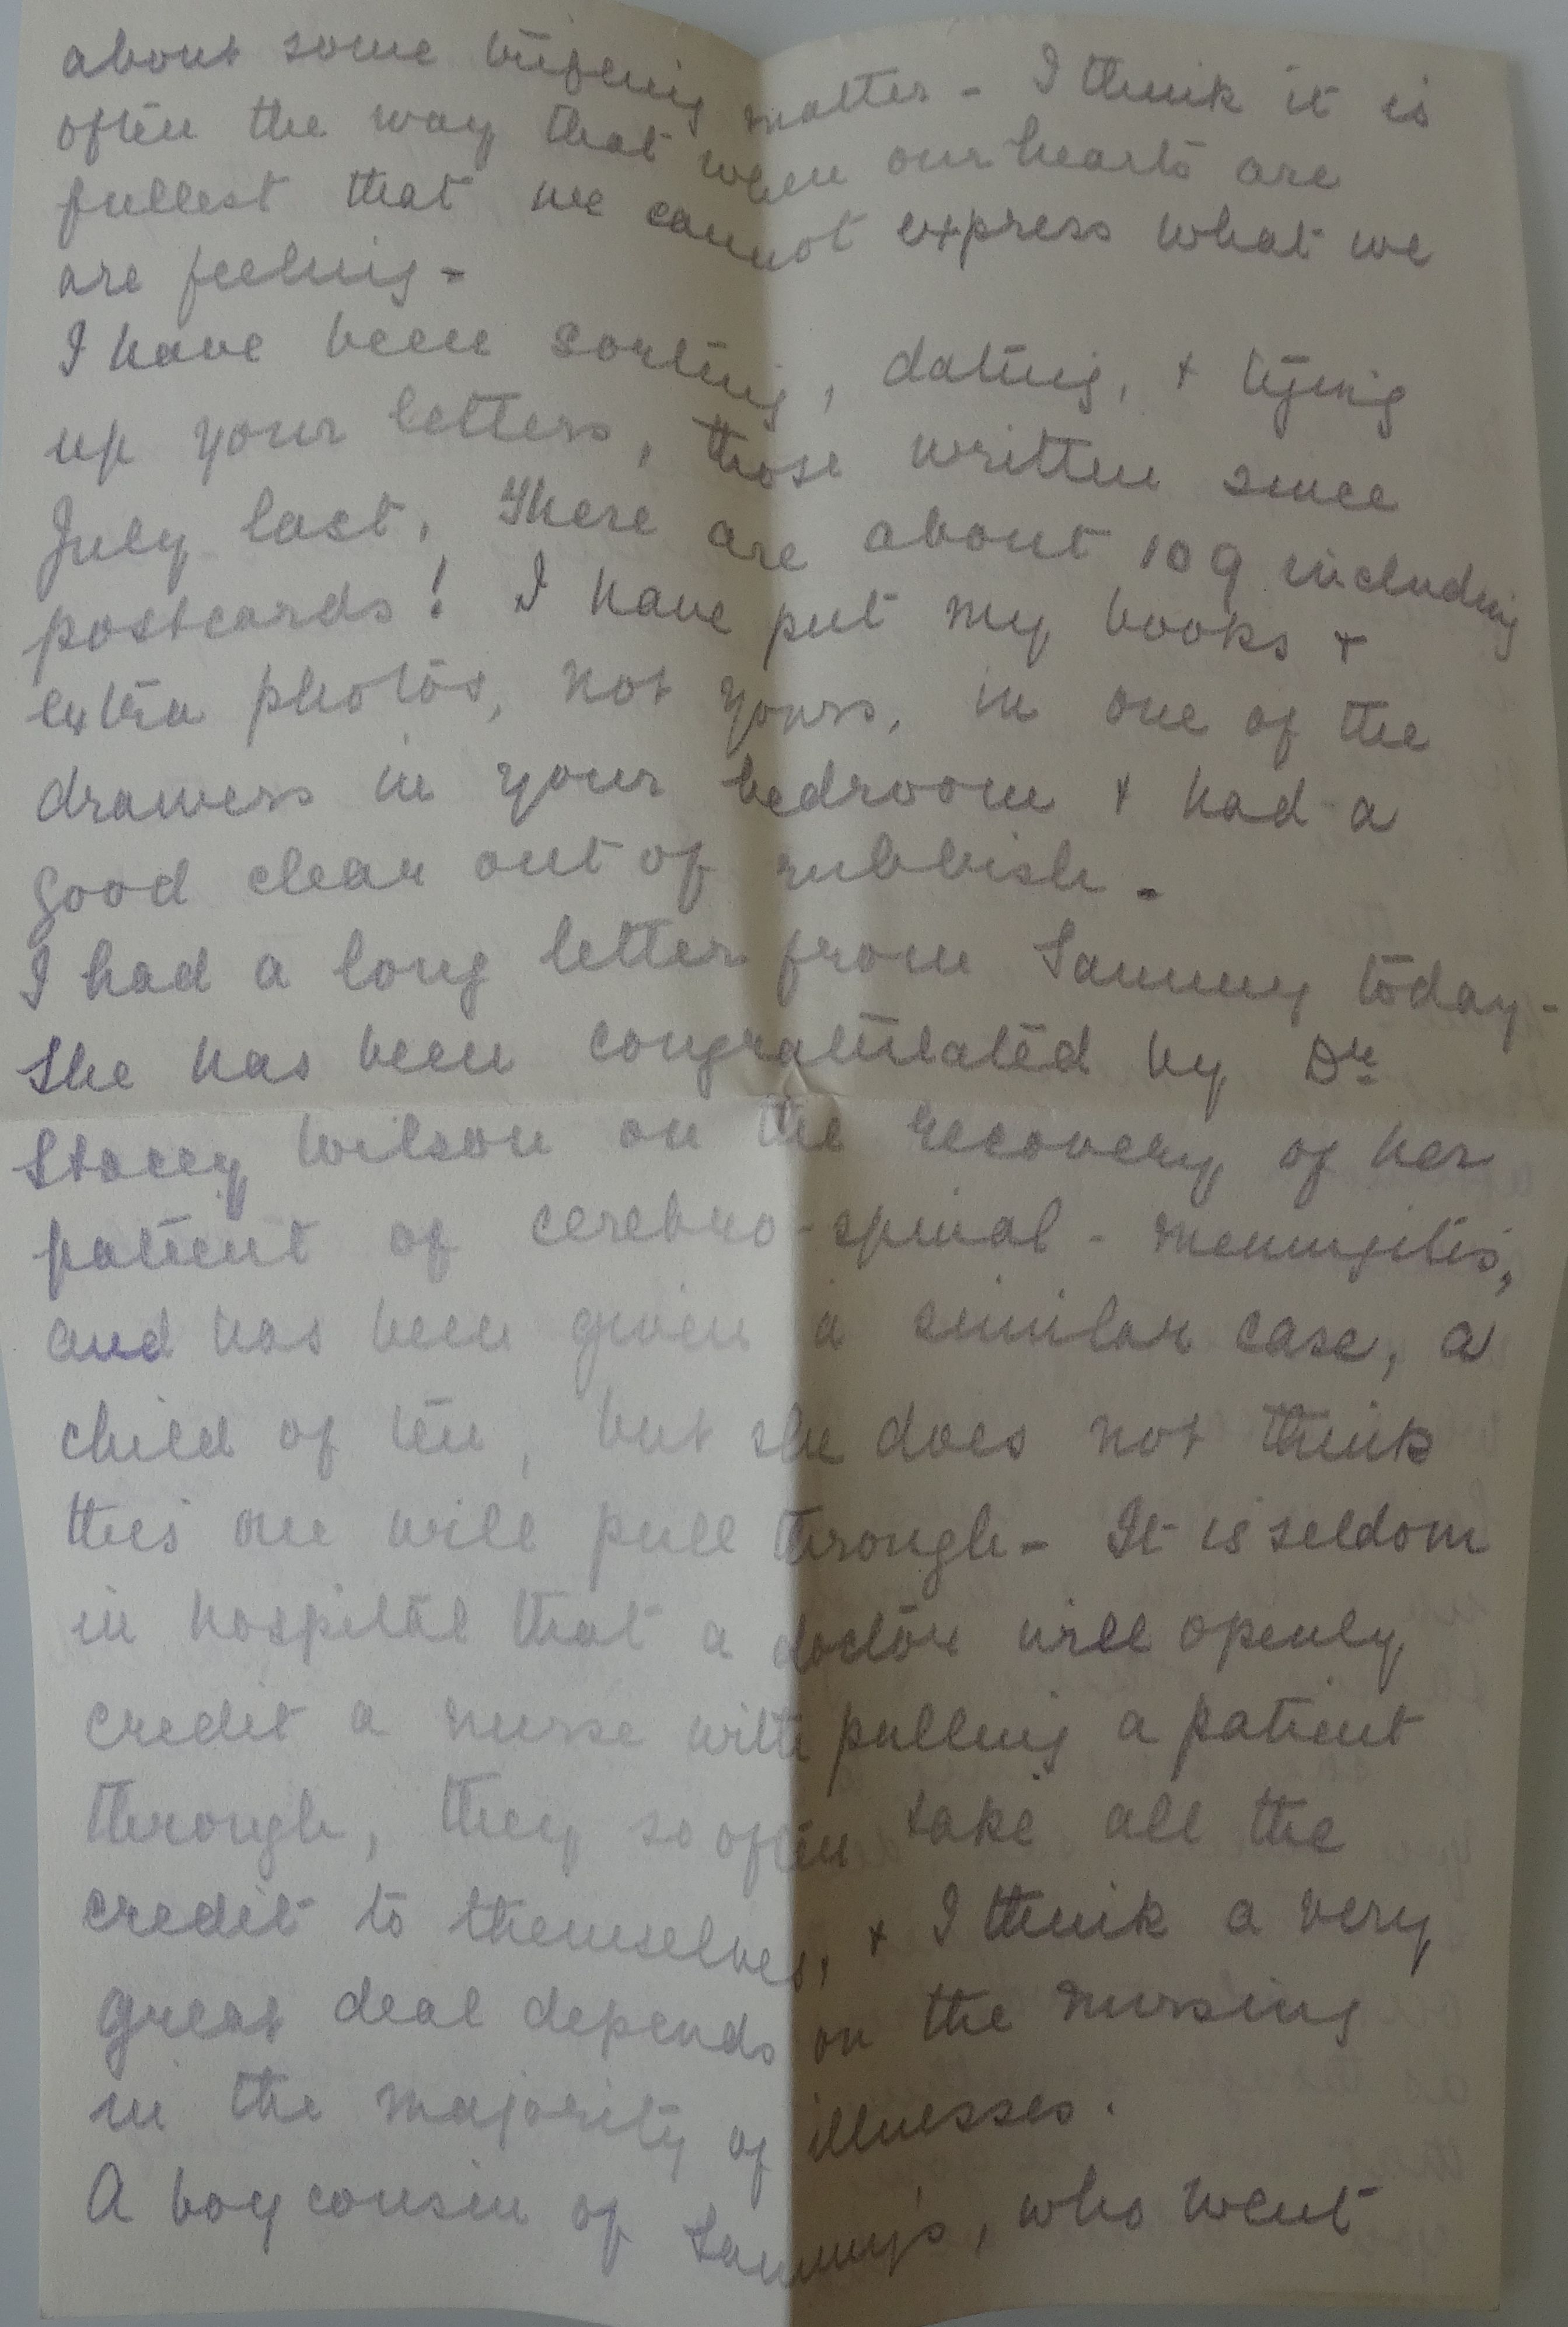 about some trifling matter - I think it is
often the way that when our hearts are
fullest that we cannot express what we
are feeling -
I have been sorting, dating, + tying
up your letters, those written since
July last. There are about 109 including
postcards! I have put my books +
extra photos, not yours, in one of the
drawers in your bedroom + had a
good clear out of rubbish -
I had a long letter from Sammy today -
She has been congratulated by Dr
Stacey Wilson on the recovery of her
patient of cerebro-spinal-meningitis,
and has been given a similar case, a
child of ten, but she does not think
this one will pull through - It is seldom
in hospital that a doctor will openly
credit a nurse with pulling a patient
through, they so often take all the
credit to themselves, + I think a very
great deal depends on the nursing
in the majority of illnesses.
A boy cousin of Sammy's, who went